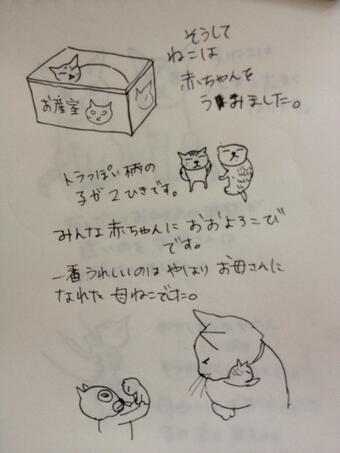 そうして
ねこは
赤ちゃんを
うみました。
お産室
トラっぽい柄の
子が2ひきです。
みんな赤ちゃんにおおよろこび
です。
一番うれしいのはやはりお母さんに
なれた母ねこでした。